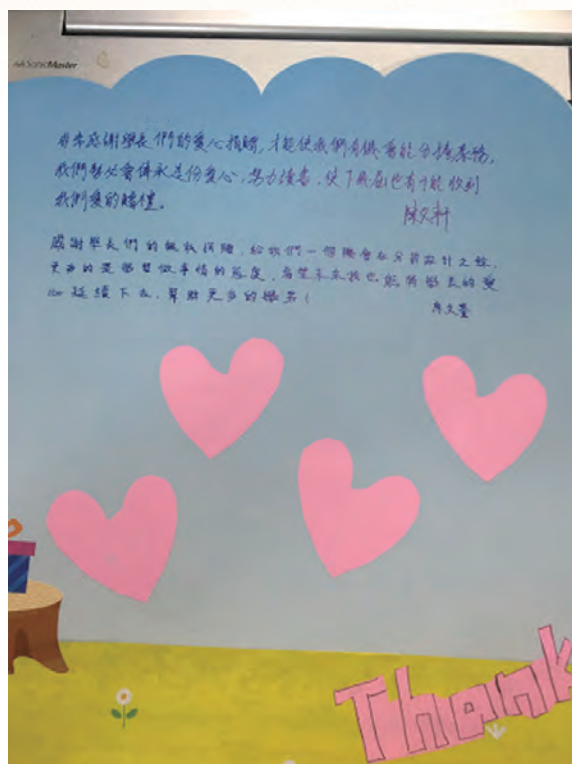 SonicMaster
非常感謝學長們的愛心捐贈,才能使我們有機會能分擔業務,
我們勢必會傳承這份愛心,努力讀書,使下幾屆也有才能收到
我們愛的贈禮。
陳文軒
感謝學長們的 捐贈,給我們一個機會在分 之餘,
更多的是學習做事情的態度,希望未來我也能將學長的愛
心延續下去,幫助更多的學弟!
文
Thank